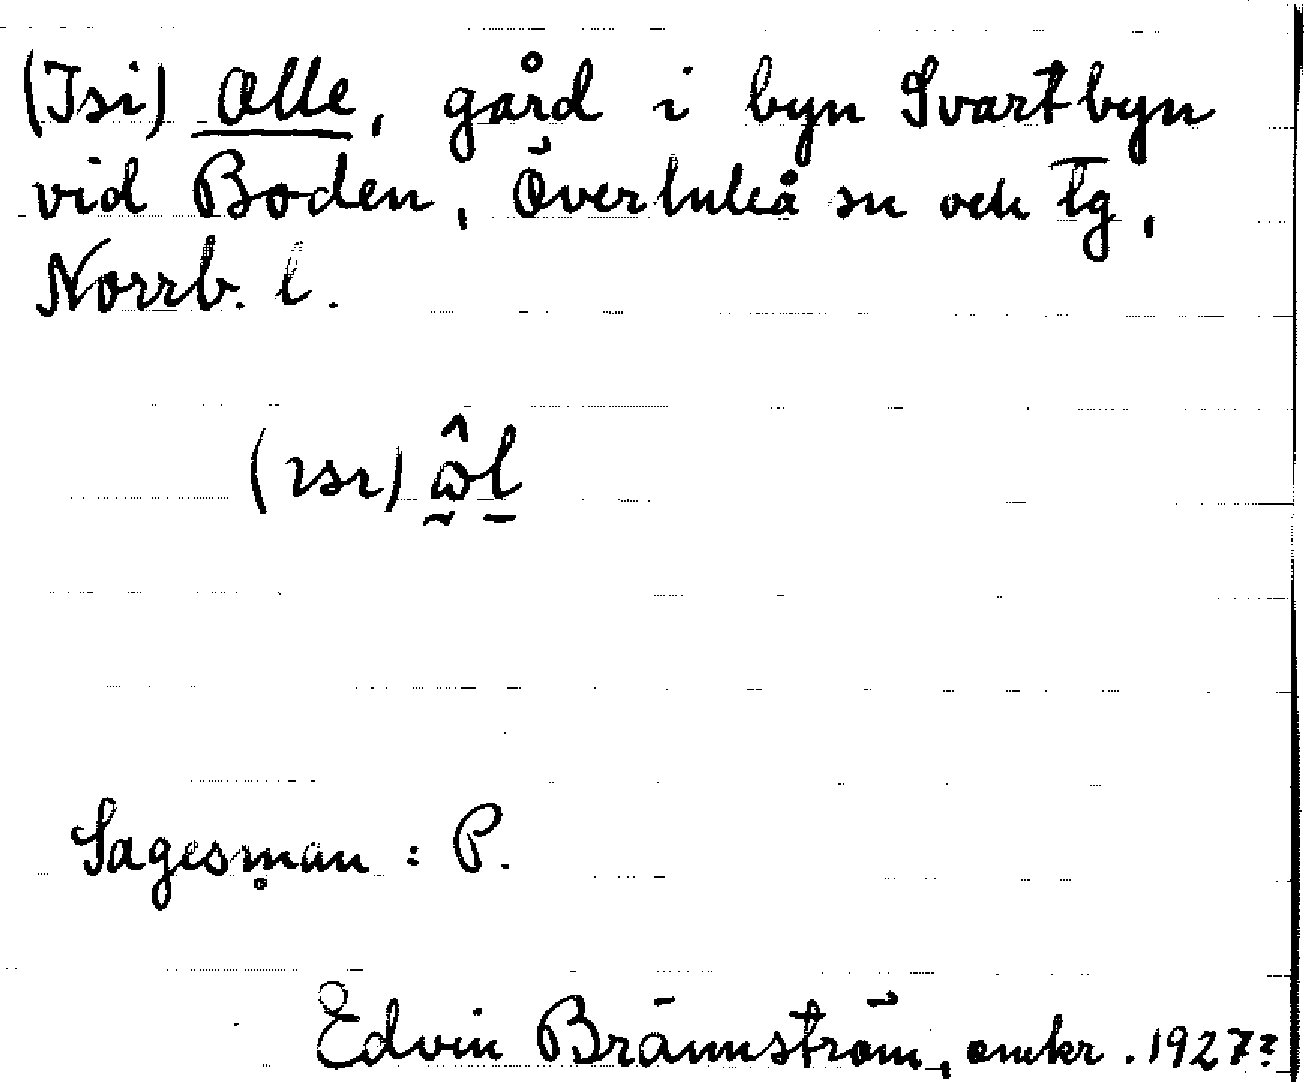 (Isi) Olle, gård i byn Svartbyn
vid Boden, Överluleå sn och tg,
Norrb. l.
(ısı) ω̂l
Sagesman : P.
Edvin Brännström, omkr. 1927?